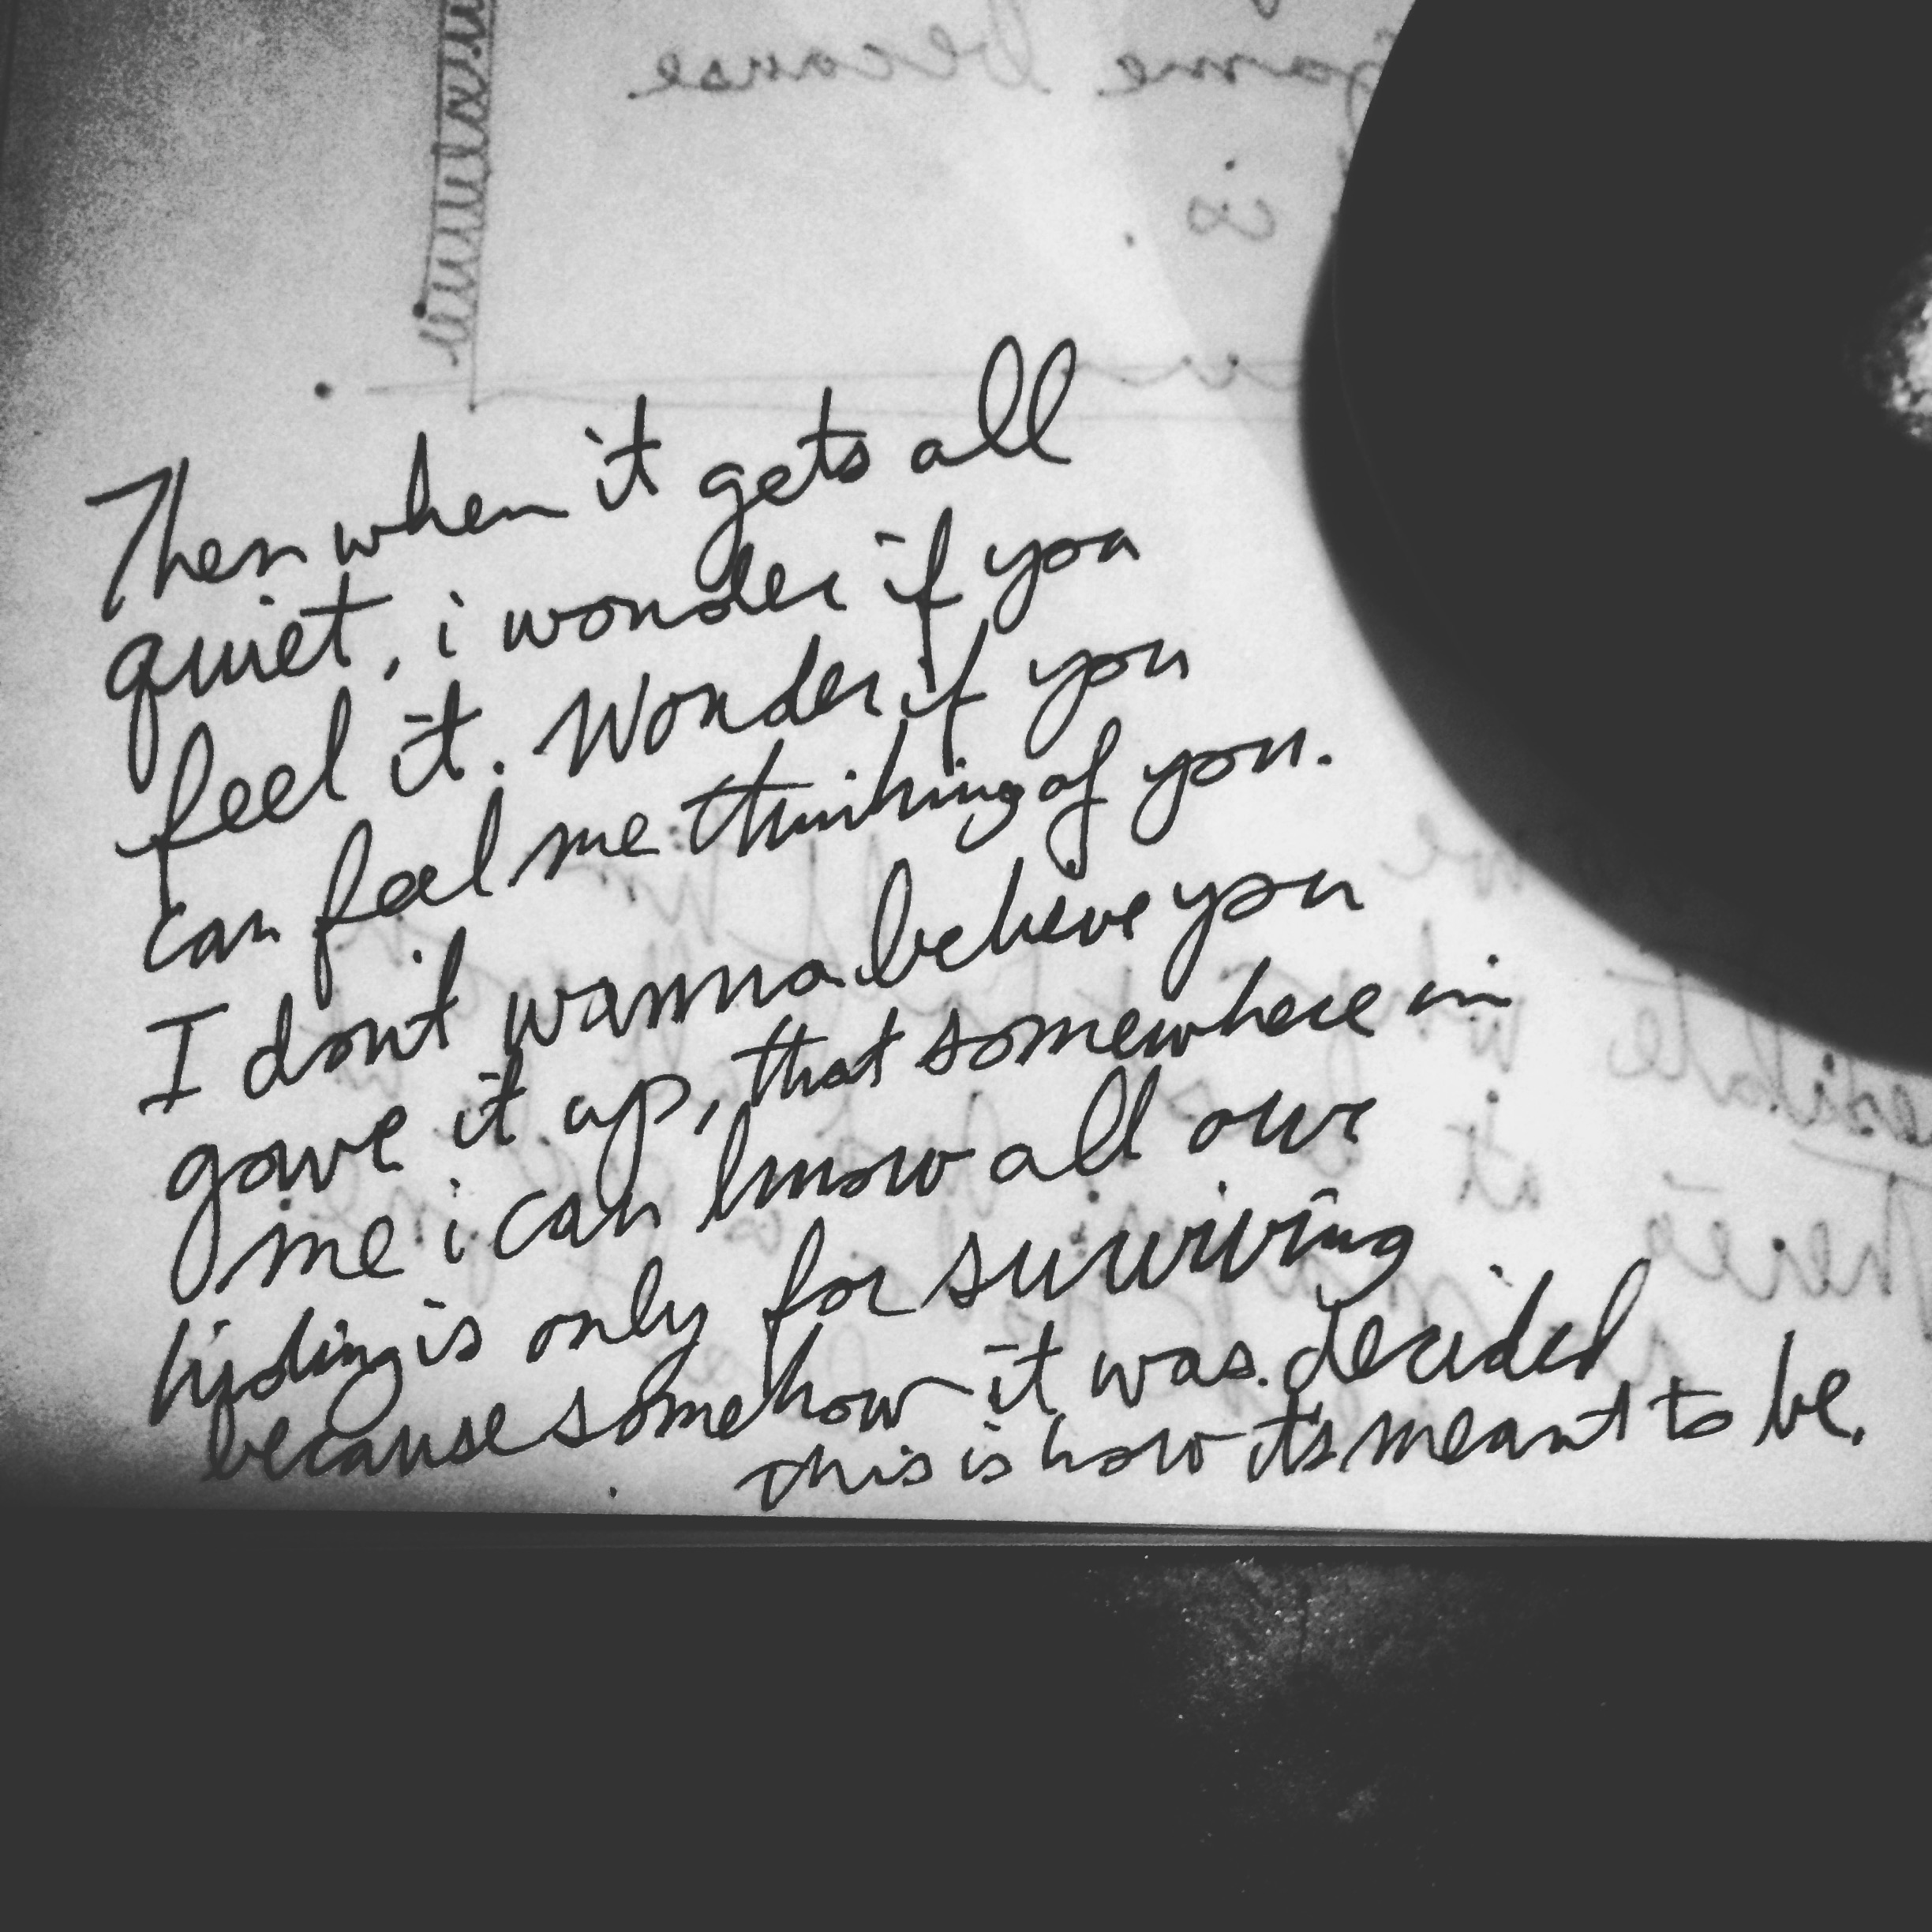 game because
is
Then when it gets all
quiet, i wonder if you
feel it. Wonder if you
can feel me thinking of you.
I don't wanna believe you
gave it up, that somewhere in
me i can know all our
hiding is only for surviving
because somehow it was decided
this is how it's meant to be.